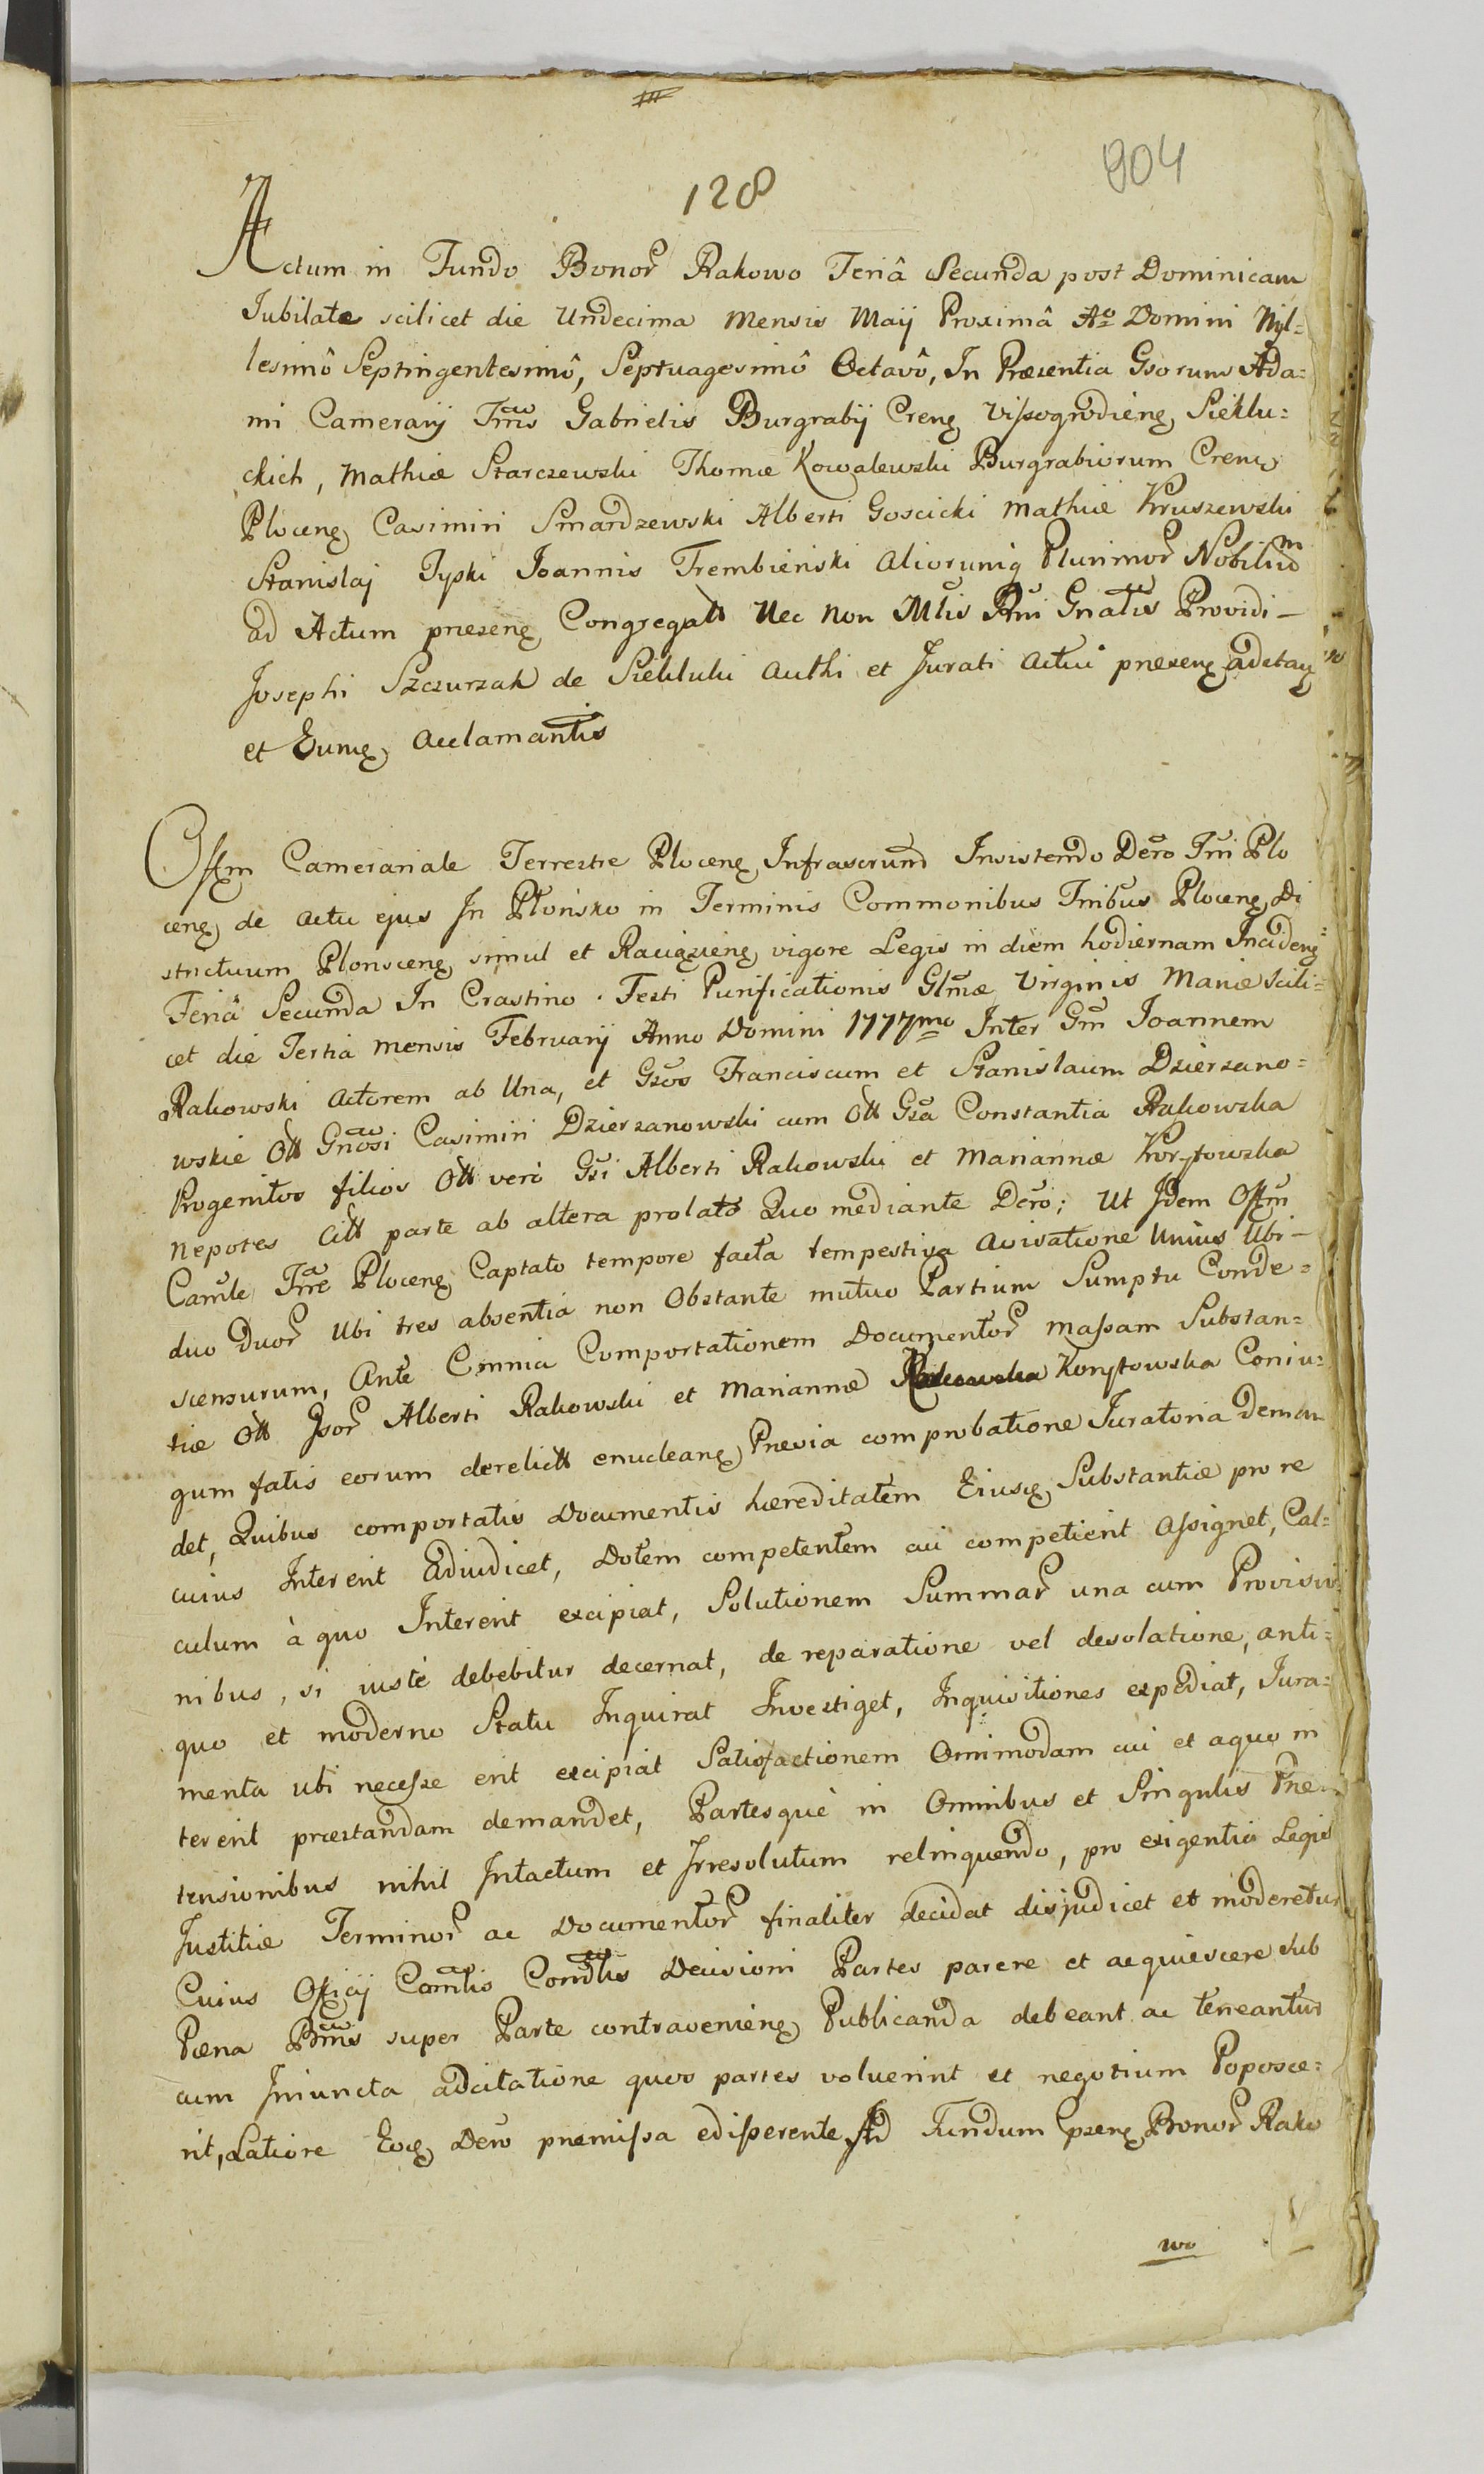 904
128
Actum in Fundo Bonor Rakowo Feriâ Secunda post Dominicam
Jubilate scilicet die Undecima Mensis Maij Proximâ Ao Domini Myl=
lesimô Septingentesimô, Septuagesimô Octavô, In Præsentia Gsorum Ada=
mi Camerarij Tris Gabrielis Burgrabij Creng Vissogrodieng Sieklu=
ckich, Mathiæ Starczewski Thomæ Kowalewski Burgrabiorum Crem
Ploceng Casimiri Smardzewski Alberti Goscicki Mathiæ Kruszewski
Stanislaj Typki Joannis Trembieński Aliorumq Plurimor Nobilium
ad Actum præseng Congregatt Nec Non Mlis Rni Gnalis Providi -
Josephi Szczurzak de Sieklulu Authi et Jurati Actui præseng adctag
et Eumq acclamantis
Offm Camerariale Terrestre Ploceng Infrascrum Insistendo Dero Tri Plo
ceng de actu ejus In Płońsko in Terminis Commonibus Tribus Ploceng Di
strictuum Plonsceng simul et Raciązieng vigore Legis in diem hodiernam Incideng
Feriâ Secunda In Crastino Festi Purificationis Glmæ Virginis Mariæ Scili=
cet die Tertia Mensis Februarij Anno Domini 1777mo Inter Gm Joannem
Rakowski Actorem ab Una, et Gsos Franciscum et Stanislaum Dzierzano=
wskie Ott Gnosi Casimiri Dzierzanowski cum Ott Gsa Constantia Rakowska
Progenitos filios Ott verò Gsi Alberti Rakowski et Mariannæ Korytowska
Nepotes Citt parte ab altera prolato Quo mediante Dero; Ut Idem Offm
Camle Tre Ploceng Captato tempore facta tempestiva avisatione Unius Ubi -
duo Duor Ubi tres absentiâ non Obstante mutuo Partium Sumptu Conde=
scensurum, Ante Omnia Comportationem Documentor Massam Substan=
tiæ Ott Gsor Alberti Rakowski et Mariannæ Korytowska Coniu=
gum fatis eorum derelictt enucleang Prævia comprobatione Juratoria deman
det, Quibus comportatis Documentis hæreditatem Eiusq Substantiæ pro re
cuius Intererit Adiudicet, Dotem competentem cui competierit Assignet, Cal=
culum à quo Intererit excipiat, Solutionem Summar una cum Provisio
nibus, si iustè debebitur decernat, de reparatione vel desolatione, anti=
quo et moderno Statu Inquirat Investiget, Inquisitiones expediat, Jura=
menta ubi necesse erit excipiat Satisfactionem Omnimodam cui et aquo in
tererit præstandam demandet, Partesquè in Omnibus et Singulis Præ
tensionibus nihil Intactum et Irresolutum relinquendo, pro exigentia Legis
Justitiæ Terminor ac Documentor finaliter decidat disjudicet et moderetur
Cuius Officij Camlis Comdlis Decisioni Partes parere et acquiescere sub
Pæna Bnnis super Parte contravenieng Publicanda debeant ac teneantur
cum Iniuncta adcitatione quos partes voluerint et negotium Poposce=
rit, Latiore Eoq Dero præmissa edisserente Ad Fundum pseng Bonor Rako
wo